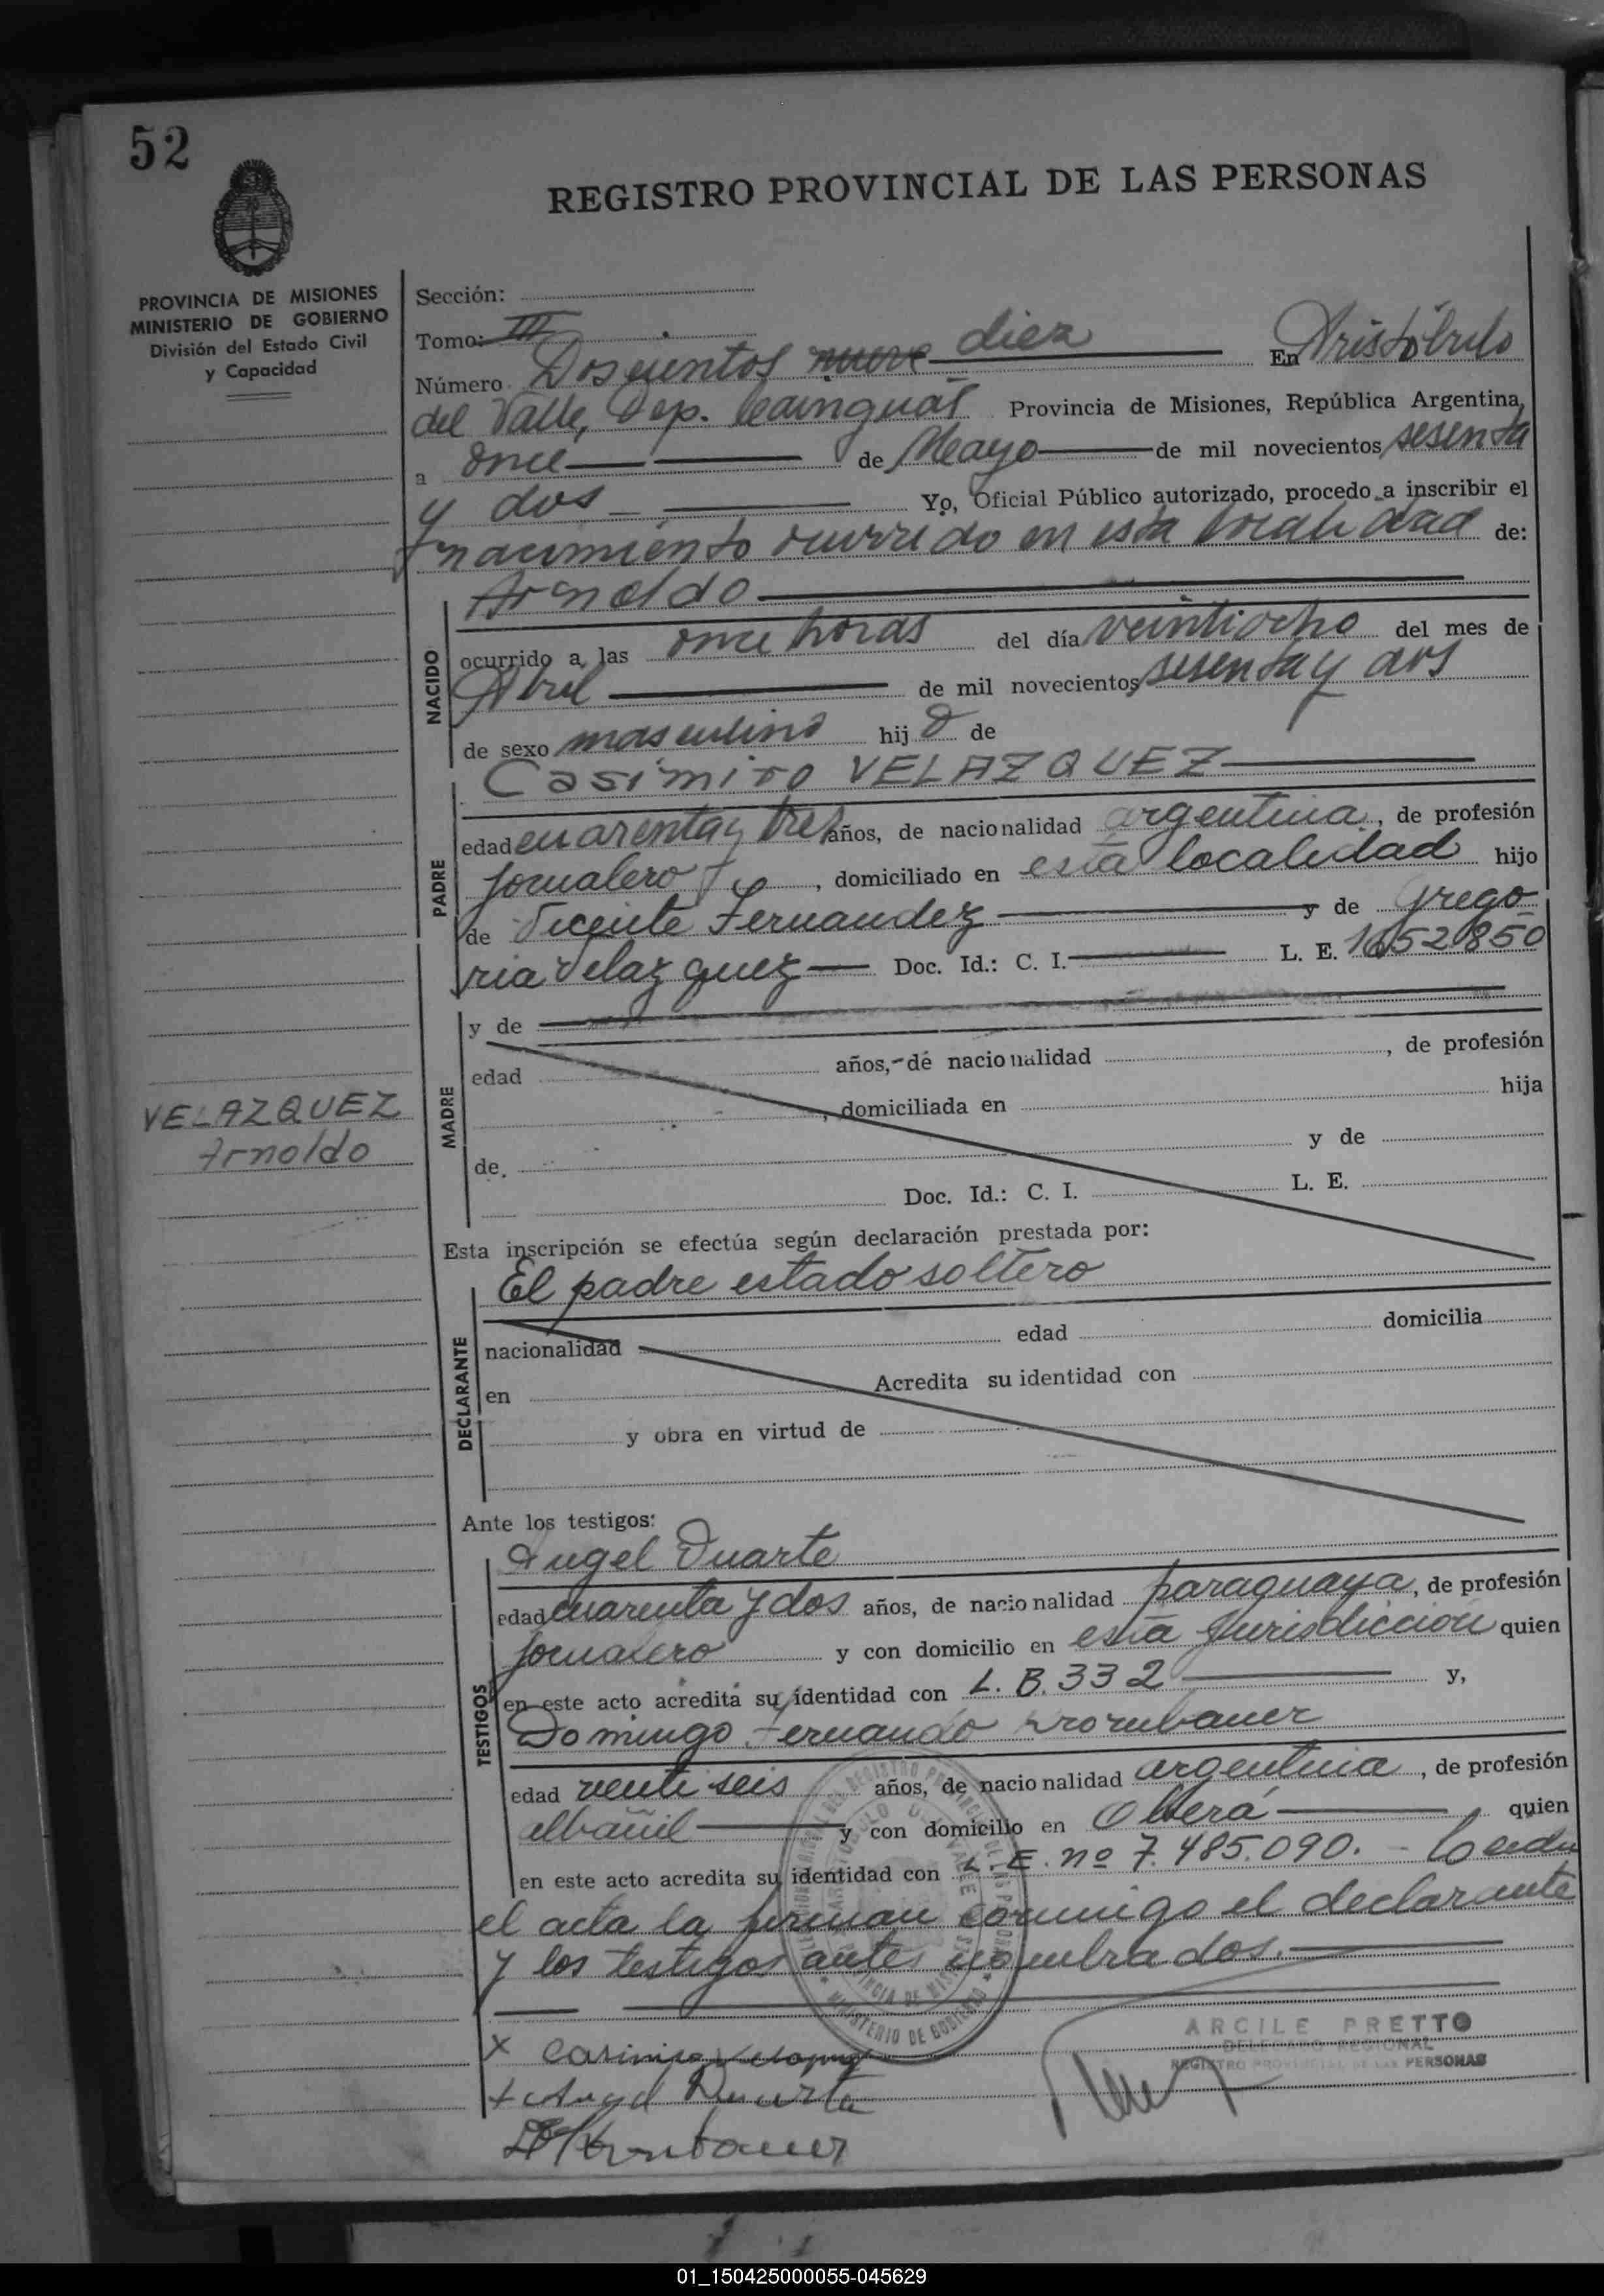 52
REGISTRO PROVINCIAL DE LAS PERSONAS
PROVINCIA DE MISIONES
MINISTERIO DE GOBIERNO
División del Estado Civil
y Capacidad
Sección:
Tomo: III
Número Doscientos nueve diez En Aristóbulo
del Valle, Dep. Cainguas Provincia de Misiones, República Argentina,
a once de Mayo de mil novecientos sesenta
y dos Yo, Oficial Público autorizado, procedo a inscribir el
nacimiento ocurrido en esta localidad de:
NACIDO
Arnoldo
ocurrido a las once horas del día veintiocho del mes de
Abril de mil novecientos sesenta y dos
de sexo masculino hij o de
PADRE
Casimiro VELAZQUEZ
edad cuarenta y tres años, de nacionalidad argentina, de profesión
jornalero, domiciliado en esta localidad hijo
de Vicente Fernandez y de Grego
ria Velazquez Doc. Id.: C. I. L. E. 1652850
MADRE
y de
edad años, de nacionalidad , de profesión
, domiciliada en hija
de. y de
Doc. Id.: C. I. L. E.
VELAZQUEZ
Arnoldo
Esta inscripción se efectúa según declaración prestada por:
DECLARANTE
El padre estado soltero
nacionalidad edad domicilia
en Acredita su identidad con
y obra en virtud de
Ante los testigos:
TESTIGOS
Angel Duarte
edad cuarenta y dos años, de nacionalidad paraguaya, de profesión
jornalero y con domicilio en esta Jurisdicción quien
en este acto acredita su identidad con L. B. 332 y,
Domingo Fernando
edad venti seis años, de nacionalidad argentina, de profesión
albañil y con domicilio en Oberá quien
en este acto acredita su identidad con L. E. nº 7.485.090. - Leida
el acta la firman conmigo el declarante
y los testigos antes nombrados.
MINISTERIO DE GOBIERNO
ARCILE PRETTO
DELEGADO REGIONAL
REGISTRO PROVINCIAL DE LAS PERSONAS
x Casimiro
+ Angel Duarte
01_150425000055-045629